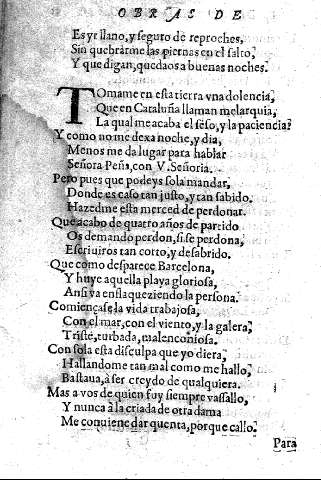 OBRAS DE
Es yr llano, y seguro de reproches,
Sin quebrarme las piernas en el salto,
Y que digan, quedaos a buenas noches.
TOmame en esta tierra vna dolencia,
Que en Cataluña llaman melarquia,
La qual me acaba el seso, y la paciencia?
Y como no me dexa noche, y dia,
Menos me da lugar para hablar
Señora Peña, con V. Señoria.
Pero pues que podeys sola mandar,
Donde es caso tan justo, y tan sabido.
Hazedme esta merced de perdonar.
Que acabo de quatro años de partido
Os demando perdon, si se perdona,
Escriuiros tan corto, y desabrido.
Que como desparece Barcelona,
Y huye aquella playa gloriosa,
Ansi va enflaqueziendo la persona.
Comiençase la vida trabajosa,
Con el mar, con el viento, y la galera,
Triste, turbada, malenconiosa.
Con sola esta disculpa que yo diera,
Hallandome tan mal como me hallo,
Bastaua, à ser creydo de qualquiera.
Mas a vos de quien fuy siempre vassallo,
Y nunca à la criada de otra dama
Me conuiene dar quenta, porque callo.
Para